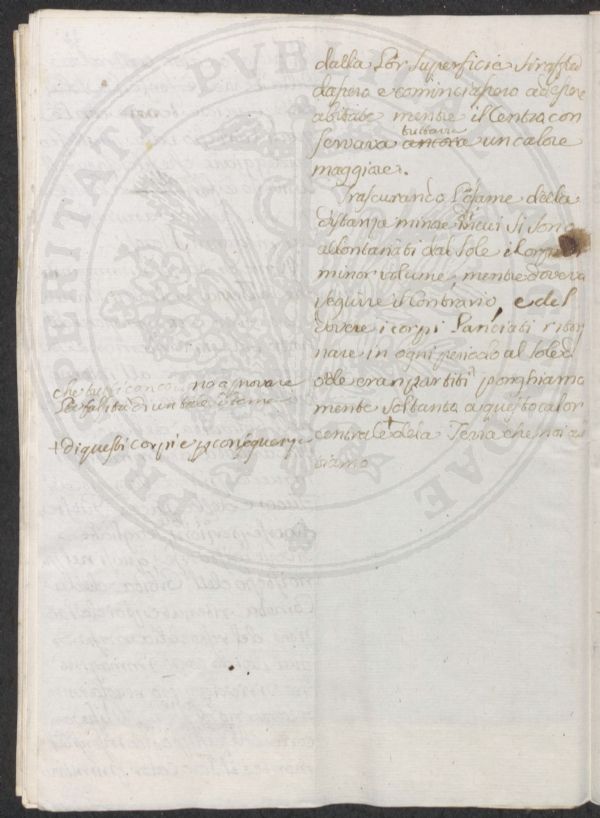 dalla lor superficie si raffred
dassero e cominciassero ad essere
abitate mentre il Centro con
servava tuttavia ancora un calore
maggiore.
Trascurando l'esame della
distanza minore di cui si sono
allontanati dal Sole i Corpi di
minor volume mentre doveva
seguire il contrario, e del
dovere i corpi lanciati ritor
nare in ogni periodo al Sole d
onde eran partiti porghiamo
mente soltanto a questo calor
centrale + della Terra che noi
siamo
che tutti concorrono a provare
la falsità di un tale sistema
+ di questi corpi e per conseguenza
PROSPERITATI PVBLICAE